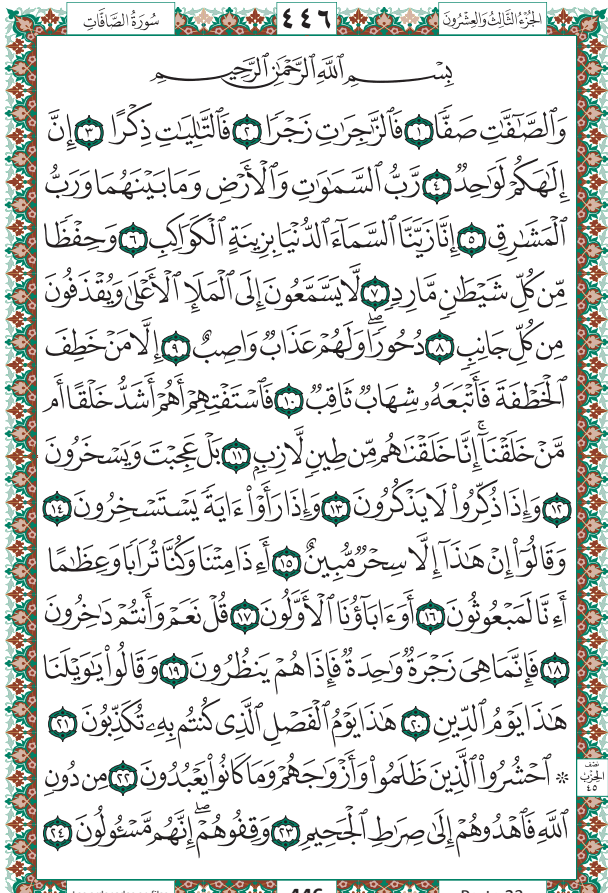 الجُزْءُ الثَّالِثُ وَالعِشْرُونَ ٤٤٦ سُورَةُ الصَّافَّاتِ
بِسْمِ ٱللَّهِ ٱلرَّحْمَٰنِ ٱلرَّحِيمِ
وَٱلصَّٰٓفَّٰتِ صَفًّا ١ فَٱلزَّٰجِرَٰتِ زَجْرًا ٢ فَٱلتَّٰلِيَٰتِ ذِكْرًا ٣ إِنَّ
إِلَٰهَكُمْ لَوَٰحِدٌ ٤ رَّبُّ ٱلسَّمَٰوَٰتِ وَٱلْأَرْضِ وَمَا بَيْنَهُمَا وَرَبُّ
ٱلْمَشَٰرِقِ ٥ إِنَّا زَيَّنَّا ٱلسَّمَآءَ ٱلدُّنْيَا بِزِينَةٍ ٱلْكَوَاكِبِ ٦ وَحِفْظًا
مِّن كُلِّ شَيْطَٰنٍ مَّارِدٍ ٧ لَّا يَسَّمَّعُونَ إِلَى ٱلْمَلَإِ ٱلْأَعْلَىٰ وَيُقْذَفُونَ
مِن كُلِّ جَانِبٍ ٨ دُحُورًا ۖ وَلَهُمْ عَذَابٌ وَاصِبٌ ٩ إِلَّا مَنْ خَطِفَ
ٱلْخَطْفَةَ فَأَتْبَعَهُۥ شِهَابٌ ثَاقِبٌ ١٠ فَٱسْتَفْتِهِمْ أَهُمْ أَشَدُّ خَلْقًا أَم
مَّنْ خَلَقْنَآ ۚ إِنَّا خَلَقْنَٰهُم مِّن طِينٍ لَّازِبٍ ١١ بَلْ عَجِبْتَ وَيَسْخَرُونَ
١٢ وَإِذَا ذُكِّرُوا۟ لَا يَذْكُرُونَ ١٣ وَإِذَا رَأَوْا۟ ءَايَةً يَسْتَسْخِرُونَ ١٤
وَقَالُوٓا۟ إِنْ هَٰذَآ إِلَّا سِحْرٌ مُّبِينٌ ١٥ أَءِذَا مِتْنَا وَكُنَّا تُرَابًا وَعِظَٰمًا
أَءِنَّا لَمَبْعُوثُونَ ١٦ أَوَءَابَآؤُنَا ٱلْأَوَّلُونَ ١٧ قُلْ نَعَمْ وَأَنتُمْ دَٰخِرُونَ
١٨ فَإِنَّمَا هِىَ زَجْرَةٌ وَٰحِدَةٌ فَإِذَا هُمْ يَنظُرُونَ ١٩ وَقَالُوا۟ يَٰوَيْلَنَا
هَٰذَا يَوْمُ ٱلدِّينِ ٢٠ هَٰذَا يَوْمُ ٱلْفَصْلِ ٱلَّذِى كُنتُم بِهِۦ تُكَذِّبُونَ ٢١
۞ ٱحْشُرُوا۟ ٱلَّذِينَ ظَلَمُوا۟ وَأَزْوَٰجَهُمْ وَمَا كَانُوا۟ يَعْبُدُونَ ٢٢ مِن دُونِ
نصف
الحزب
٤٥
ٱللَّهِ فَٱهْدُوهُمْ إِلَىٰ صِرَٰطِ ٱلْجَحِيمِ ٢٣ وَقِفُوهُمْ ۖ إِنَّهُم مَّسْـُٔولُونَ ٢٤